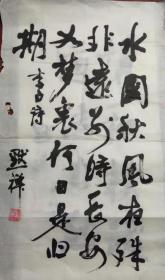 水國秋風夜殊
非遠别時長安
如夢裏何日是归
期 李白詩
默祥